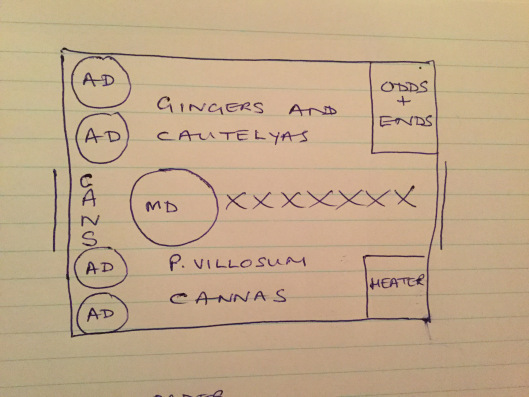 AD
ODDS
+
ENDS
GINGERS AND
AD
CAUTELYAS
CANS
MD XXXXXXX
AD
P. VILLOSUM
HEATER
CANNAS
AD